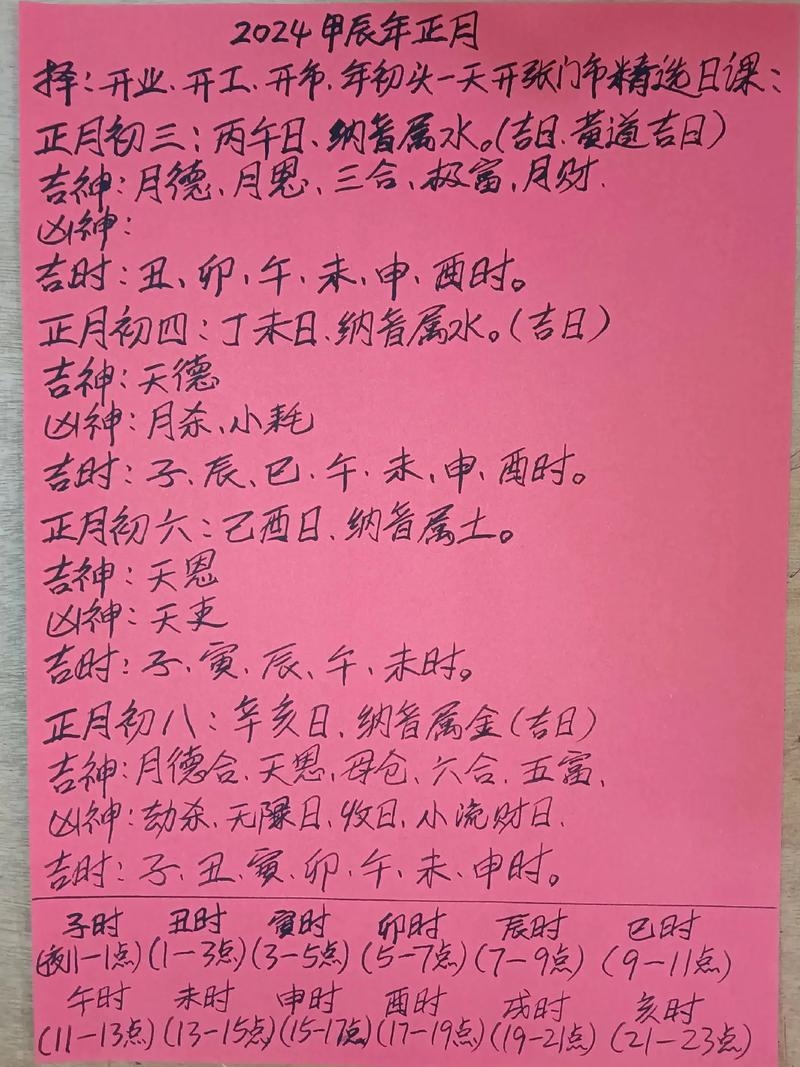 2024甲辰年正月
择:开业、开工、开市、年初头一天开张门市精选日课:
正月初三:丙午日、纳音属水。(吉日、黄道吉日)
吉神:月德、月恩、三合、极富、月财.
凶神:
吉时:丑、卯、午、未、申、酉时。
正月初四:丁未日、纳音属水。(吉日)
吉神:天德
凶神:月杀、小耗
吉时:子、辰、巳、午、未、申、酉时。
正月初六:己酉日、纳音属土。
吉神:天恩
凶神:天吏
吉时:子、寅、辰、午、未时。
正月初八:辛亥日、纳音属金(吉日)
吉神:月德合、天恩、母仓、六合、五富、
凶神:劫杀、无禄日、收日、小流财日.
吉时:子、丑、寅、卯、午、未、申时。
子时 丑时 寅时 卯时 辰时 巳时
(夜11-1点) (1-3点) (3-5点) (5-7点) (7-9点) (9-11点)
午时 未时 申时 酉时 戌时 亥时
(11-13点) (13-15点) (15-17点) (17-19点) (19-21点) (21-23点)